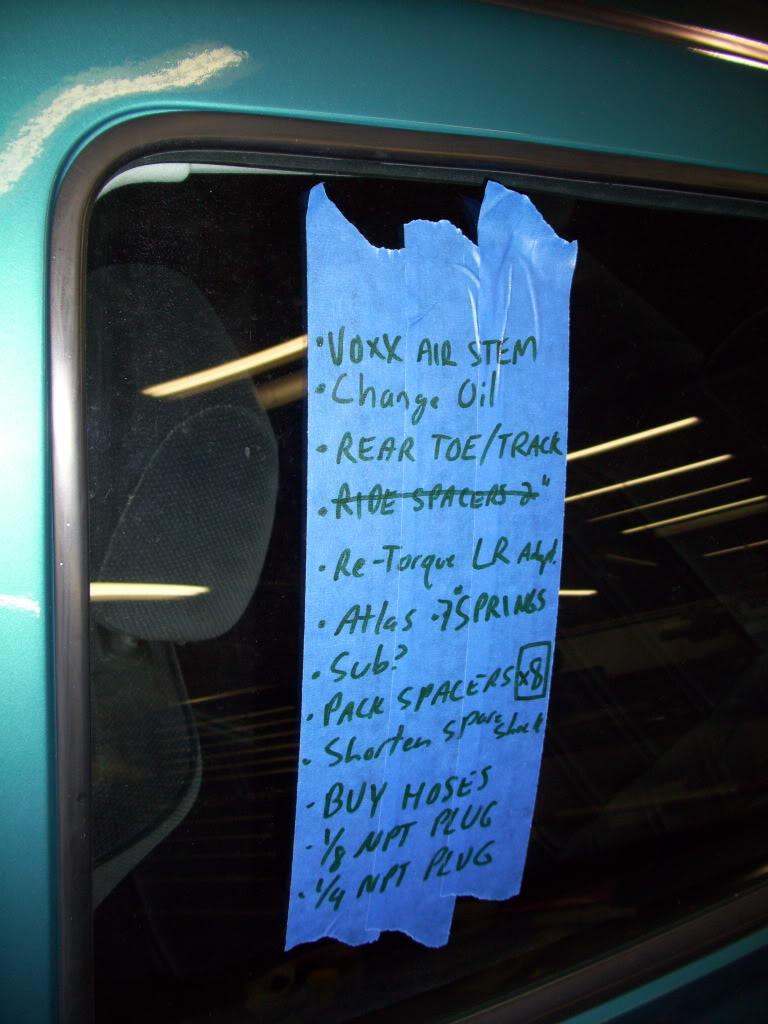 • VOXX AIR STEM
• Change Oil
• REAR TOE/TRACK
• RIDE SPACERS 2"
• Re-Torque LR Adapt.
• Atlas .75" SPRINGS
• Sub?
• PACK SPACERS x8
• Shorten spare shock
• BUY HOSES
• 1/8 NPT PLUG
• 1/4 NPT PLUG